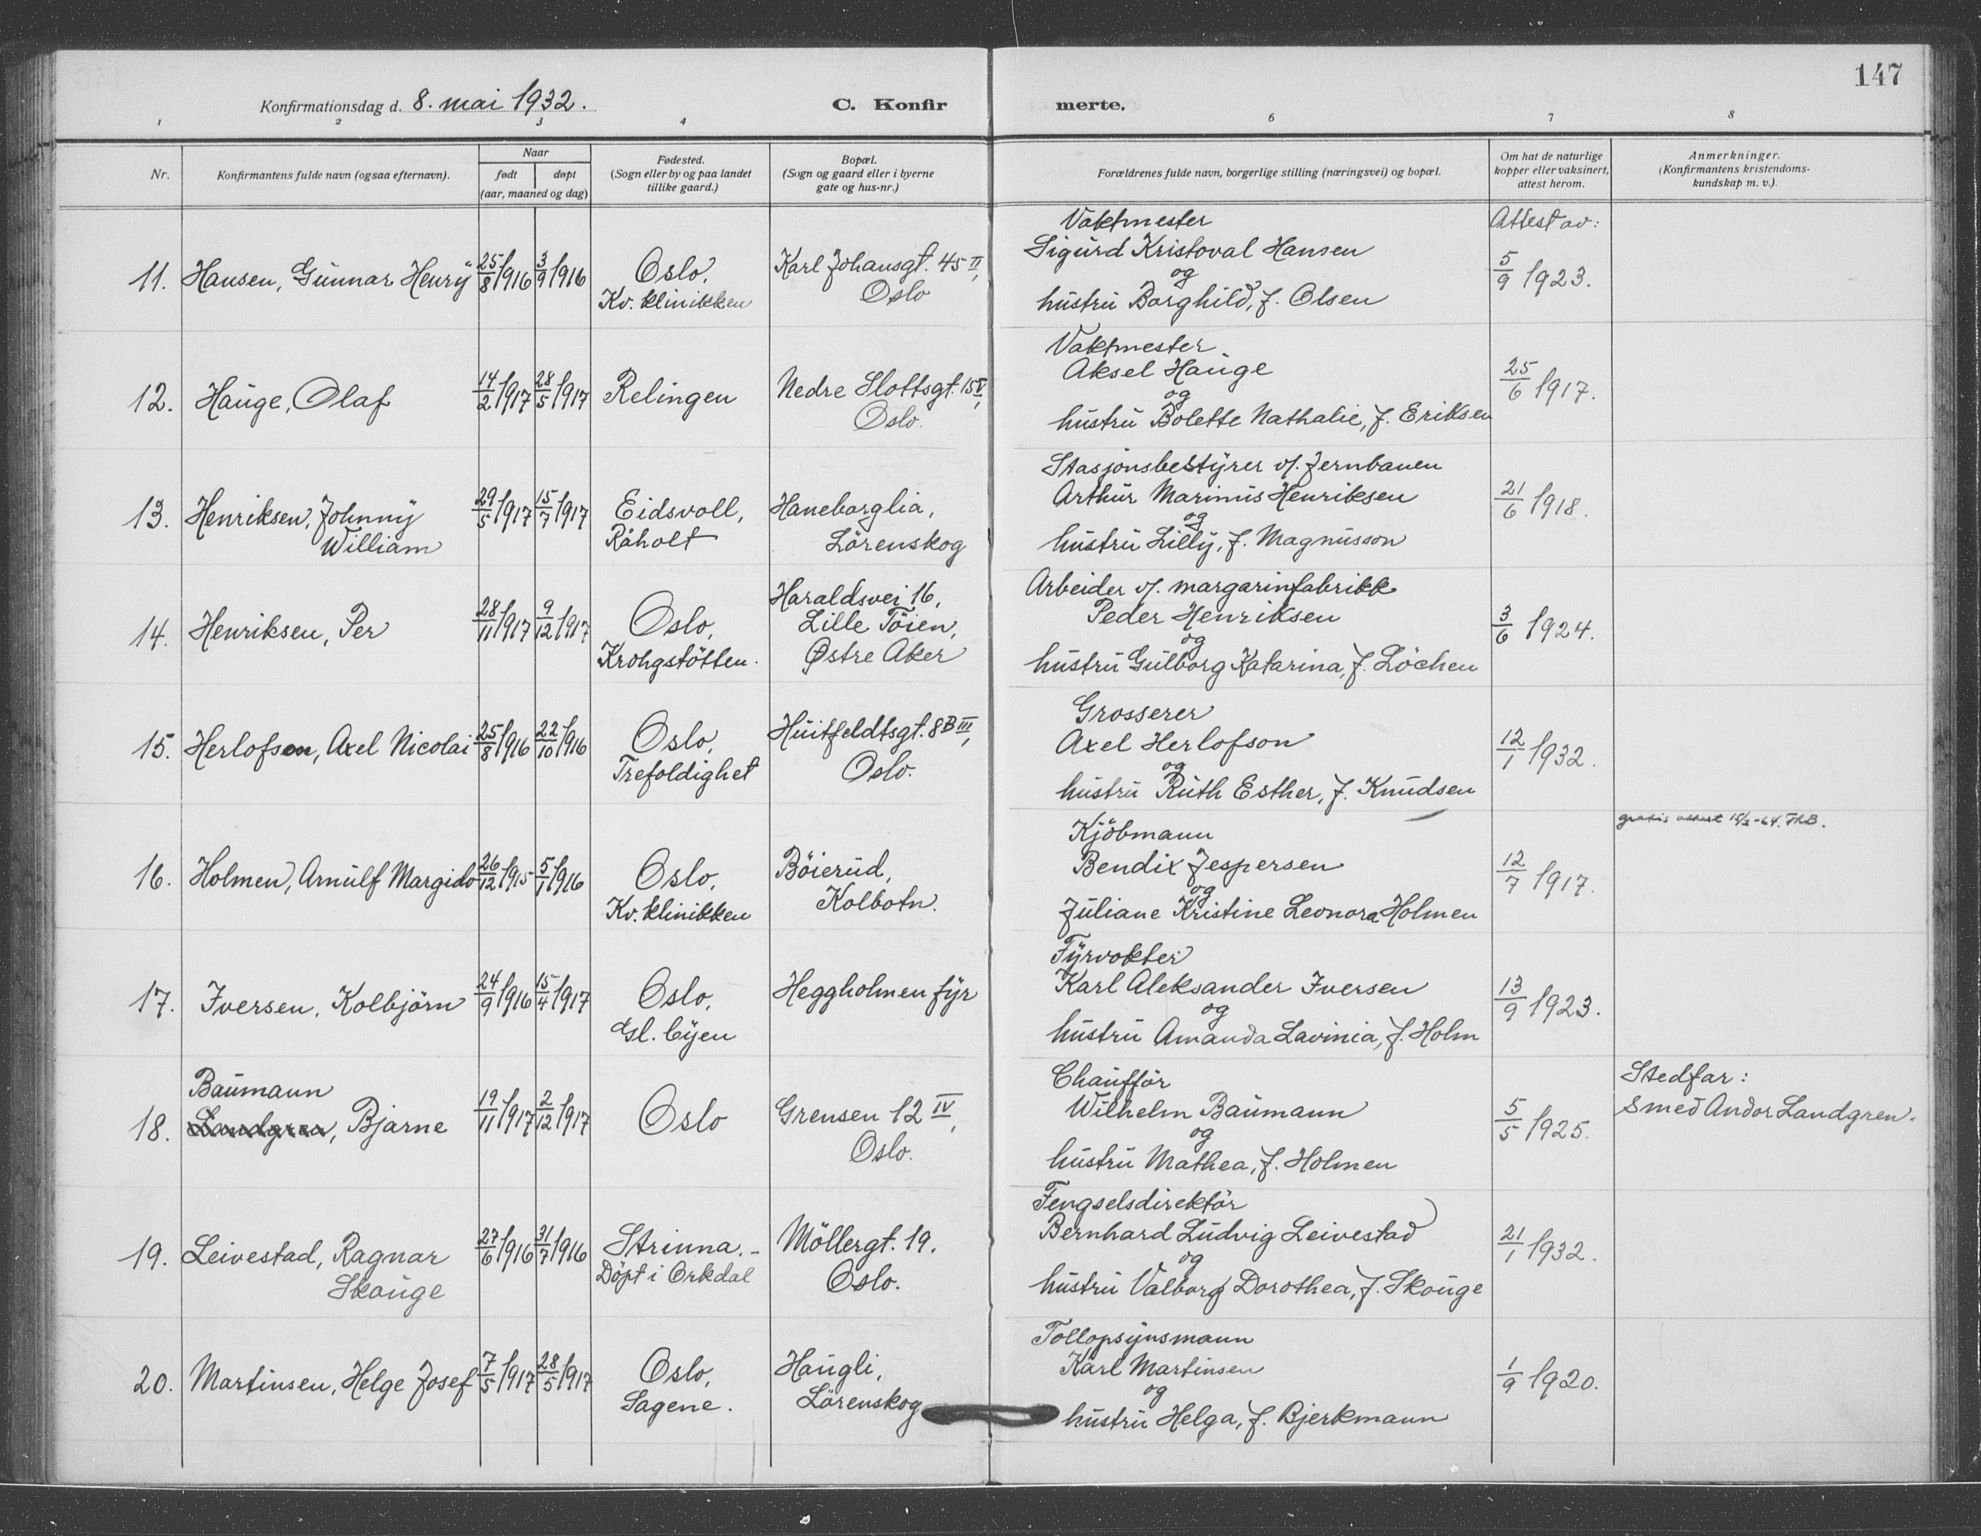 147
Konfirmationsdag d. 8. mai 1932. C. Konfir merte.
1 2 3 4 6 7 8
Nr.
Konfirmantens fulde navn (ogsaa efternavn).
Naar
født døpt
(aar, maaned og dag)
Fødested.
(Sogn eller by og paa landet
tillike gaard.)
Bopæl.
(Sogn og gaard eller i byerne
gate og hus-nr.)
Forældrenes fulde navn, borgerlige stilling (næringsvei) og bopæl.
Om hat de naturlige
kopper eller vaksinert,
attest herom.
Anmerkninger.
(Konfirmantens kristendoms-
kundskap m. v.).
11. Hansen, Gunnar Henry 25/8 1916 3/9 1916
Oslo,
Kv. klinikken
Karl Johansgt. 45 II,
Oslo
Vaktmester
Sigurd Kristoval Hansen
og
hustru Borghild, f. Olsen
Attest av:
5/9 1923.
12. Hauge, Olaf 14/2 1917 28/5 1917
Relingen
Nedre Slottsgt. 15 V,
Oslo.
Vaktmester
Aksel Hauge
og
hustru Bolette Nathalie, f. Eriksen
25/6 1917.
13. Henriksen, Johnny
William
29/5 1917 15/7 1917
Eidsvoll,
Råholt
Haneborglia,
Lörenskog
Stasjonsbestyrer v/. Jernbanen
Arthur Marinius Henriksen
og
hustru Lilly, f. Magnusson
21/6 1918.
14. Henriksen, Per 28/11 1917 9/12 1917
Oslo,
Krohgstötten.
Haraldsvei 16,
Lille Töien,
Østre Aker
Arbeider v/. margarinfabrikk
Peder Henriksen
og
hustru Gulborg Katarina, f. Löchen
3/6 1924.
15. Herlofson, Axel Nicolai 25/8 1916 22/10 1916
Oslo,
Trefoldighet
Huitfeldtsgt. 8B III,
Oslo.
Grosserer
Axel Herlofson
og
hustru Ruth Esther, f. Knudsen
12/1 1932.
16. Holmen, Arnulf Margido 26/12 1915 5/1 1916
Oslo,
Kv. klinikken
Böierud,
Kolbotn.
Kjöbmann
Bendix Jespersen
og
Juliane Kristine Leonora Holmen
12/7 1917.
gratis attest 15/2-64. FRB.
17. Iversen, Kolbjörn 24/9 1916 15/4 1917
Oslo,
Gl. Byen
Heggholmen fyr
Fyrvokter
Karl Aleksander Iversen
og
hustru Amanda Lavinia, f. Holm
13/9 1923.
Baumann
18. Landgren, Bjarne 19/11 1917 2/12 1917
Oslo
Grensen 12 IV,
Oslo.
Chaufför
Wilhelm Baumann
og
hustru Mathea, f. Holmen
5/5 1925.
Stedfar:
Smed Andor Landgren.
19. Leivestad, Ragnar
Skauge
27/6 1916 31/7 1916
Strinna. -
Döpt i Orkdal
Möllergt. 19.
Oslo.
Fengselsdirektör
Bernhard Ludvig Leivestad
og
hustru Valborg Dorothea, f. Skauge
21/1 1932.
20. Martinsen, Helge Josef 7/5 1917 28/5 1917
Oslo,
Sagene.
Haugli,
Lörenskog
Tollopsynsmann
Karl Martinsen
og
hustru Helga, f. Bjerkmann
1/9 1920.